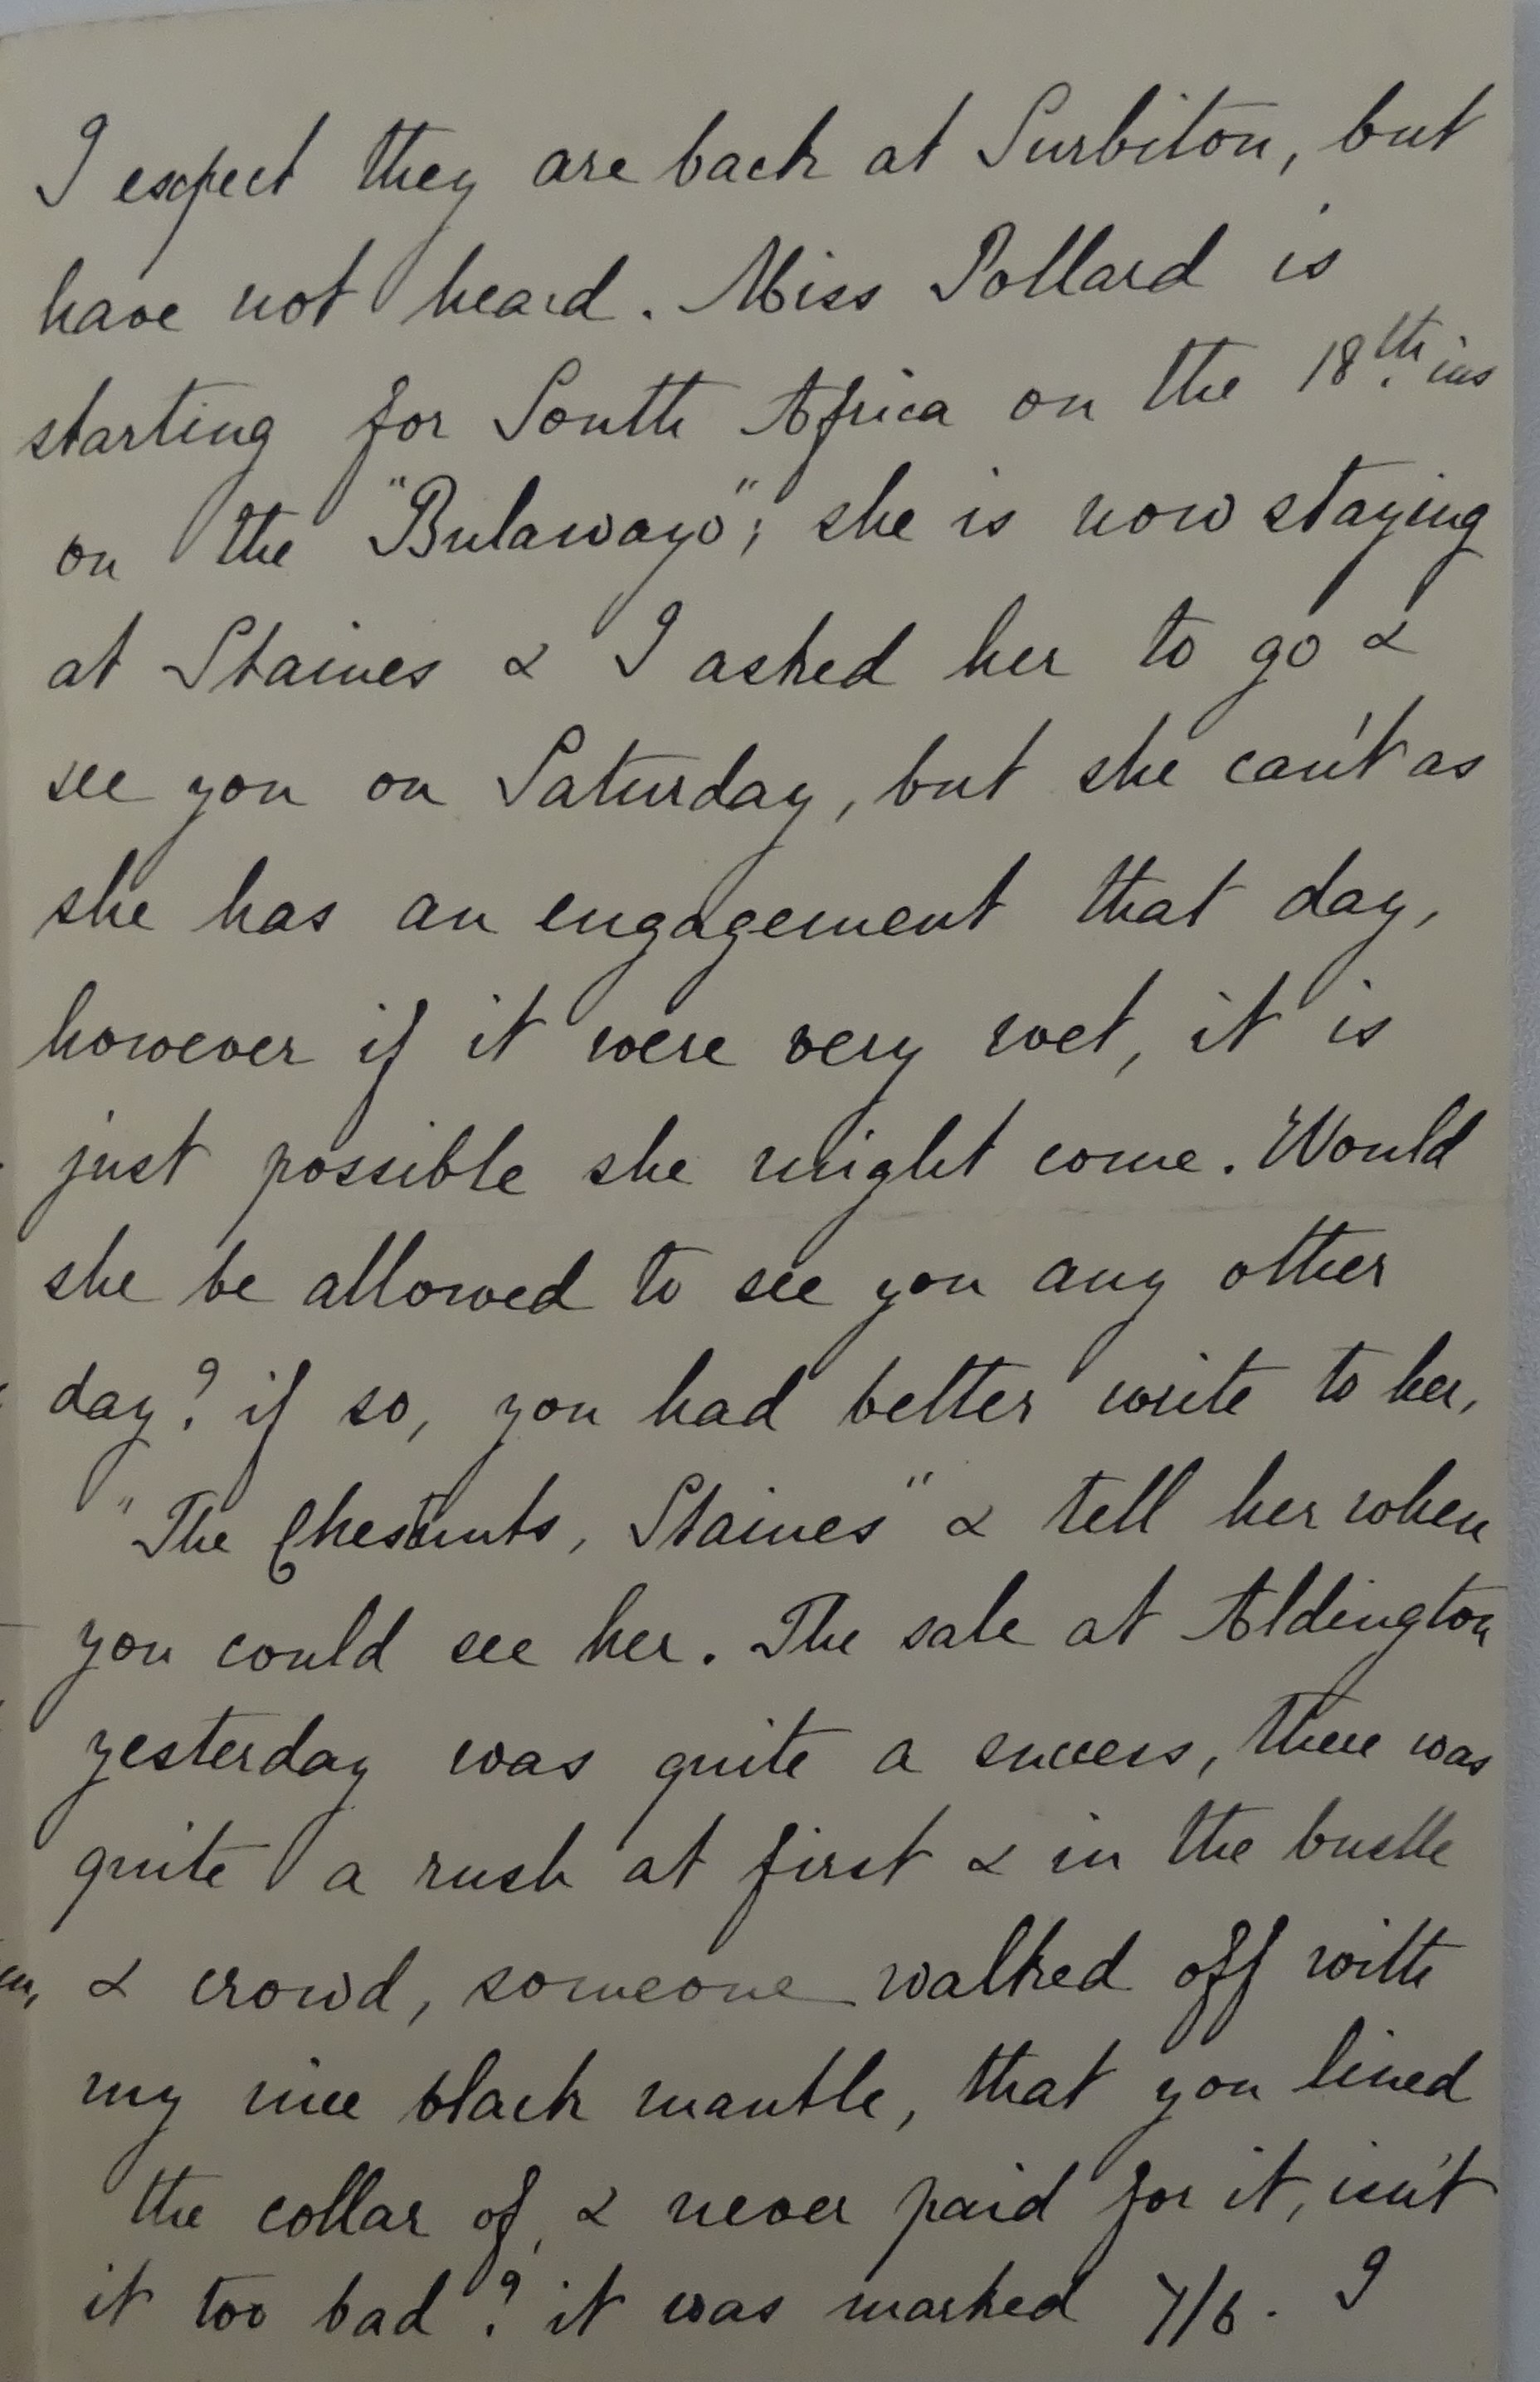 I expect they are back at Surbiton, but
have not heard. Miss Pollard is
starting for South Africa on the 18th. ins
on the "Bulawayo"; she is now staying
at Staines & I asked her to go &
see you on Saturday, but she can't as
she has an engagement that day,
however if it were very wet, it is
just possible she might come. Would
she be allowed to see you any other
day? if so, you had better write to her,
"The Chestnuts, Staines" & tell her when
you could see her. The sale at Aldington
yesterday was quite a success, there was
quite a rush at first & in the bustle
& crowd, someone walked off with
my nice black mantle, that you lined
the collar of, & never paid for it, isn't
it too bad? it was marked 7/6. I